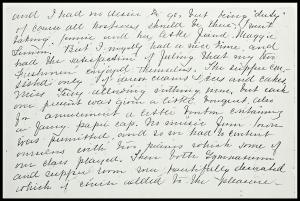 and I had no desire to go, but being "duty"
of course all hostesses should be there. I went
taking Jennie and her little friend Maggie
. But I myself had a nice time, and
had the satisfaction of feeling that my two
Freshmen enjoyed themselves. The supper con-
sisted only of ices and cakes
allowing nothing more, but each
one present was given a little bouquet, also
for amusement a little bonbon containing
a fancy paper cap. No music from town
was permitted, and so we had to content
ourselves with two pianos which some of
our class played. Then both Gymnasium
and supper room were beautifully decorated
which of course added to the pleasure